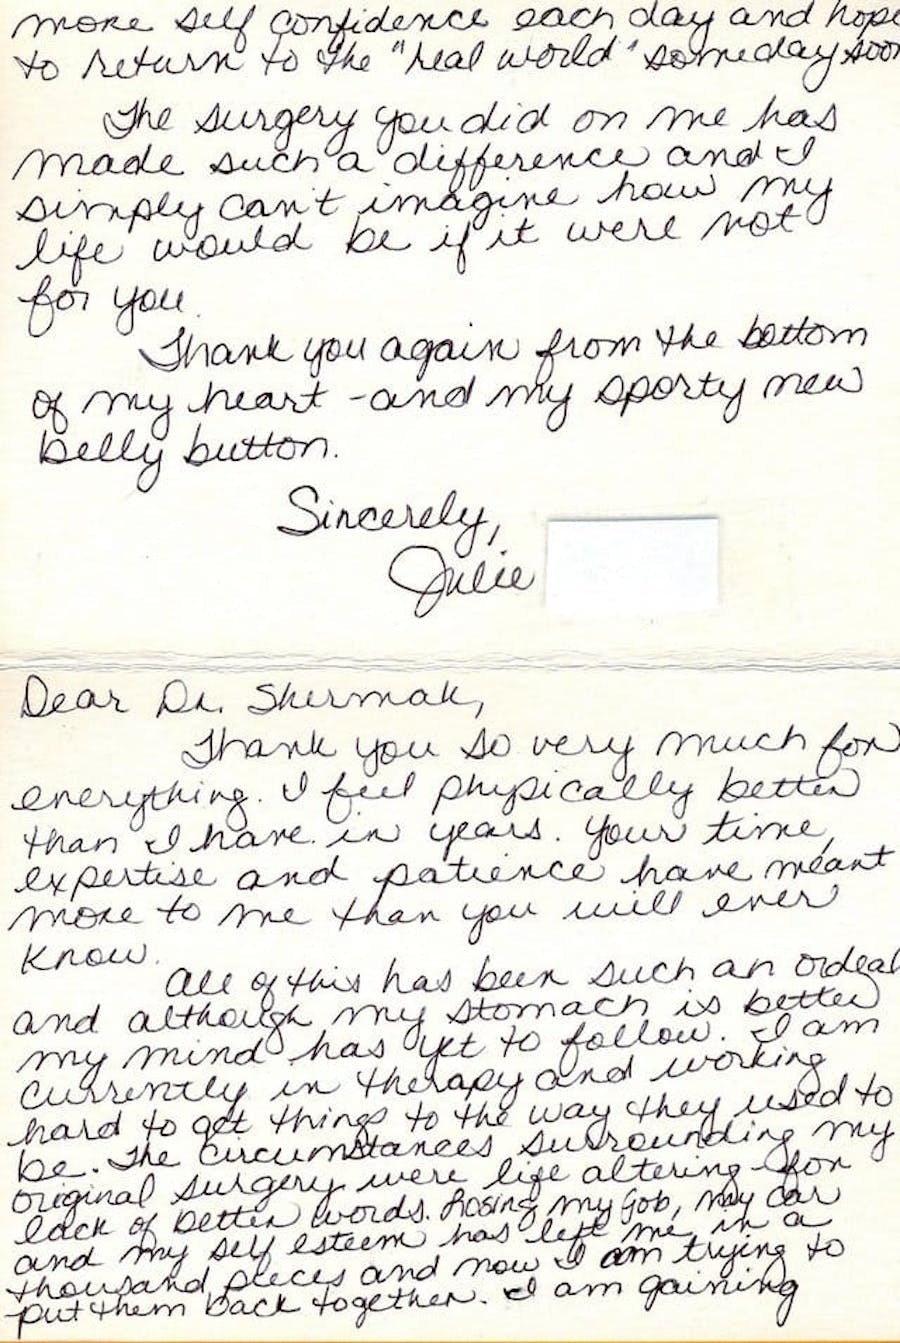 more self confidence each day and hope
to return to the "real world" someday soon
The surgery you did on me has
made such a difference and I
simply can't imagine how my
life would be if it were not
for you.
Thank you again from the bottom
of my heart - and my sporty new
belly button.
Sincerely,
Julie
Dear Dr. Shermak,
Thank you so very much for
everything. I feel physically better
than I have in years. Your time,
expertise and patience have meant
more to me than you will ever
know.
All of this has been such an ordeal
and although my stomach is better
my mind has yet to follow. I am
currently in therapy and working
hard to get things to the way they used to
be. The circumstances surrounding my
original surgery were life altering - for
lack of better words. Losing my job, my car
and my self esteem has left me in a
thousand pieces and now I am trying to
put them back together. I am gaining